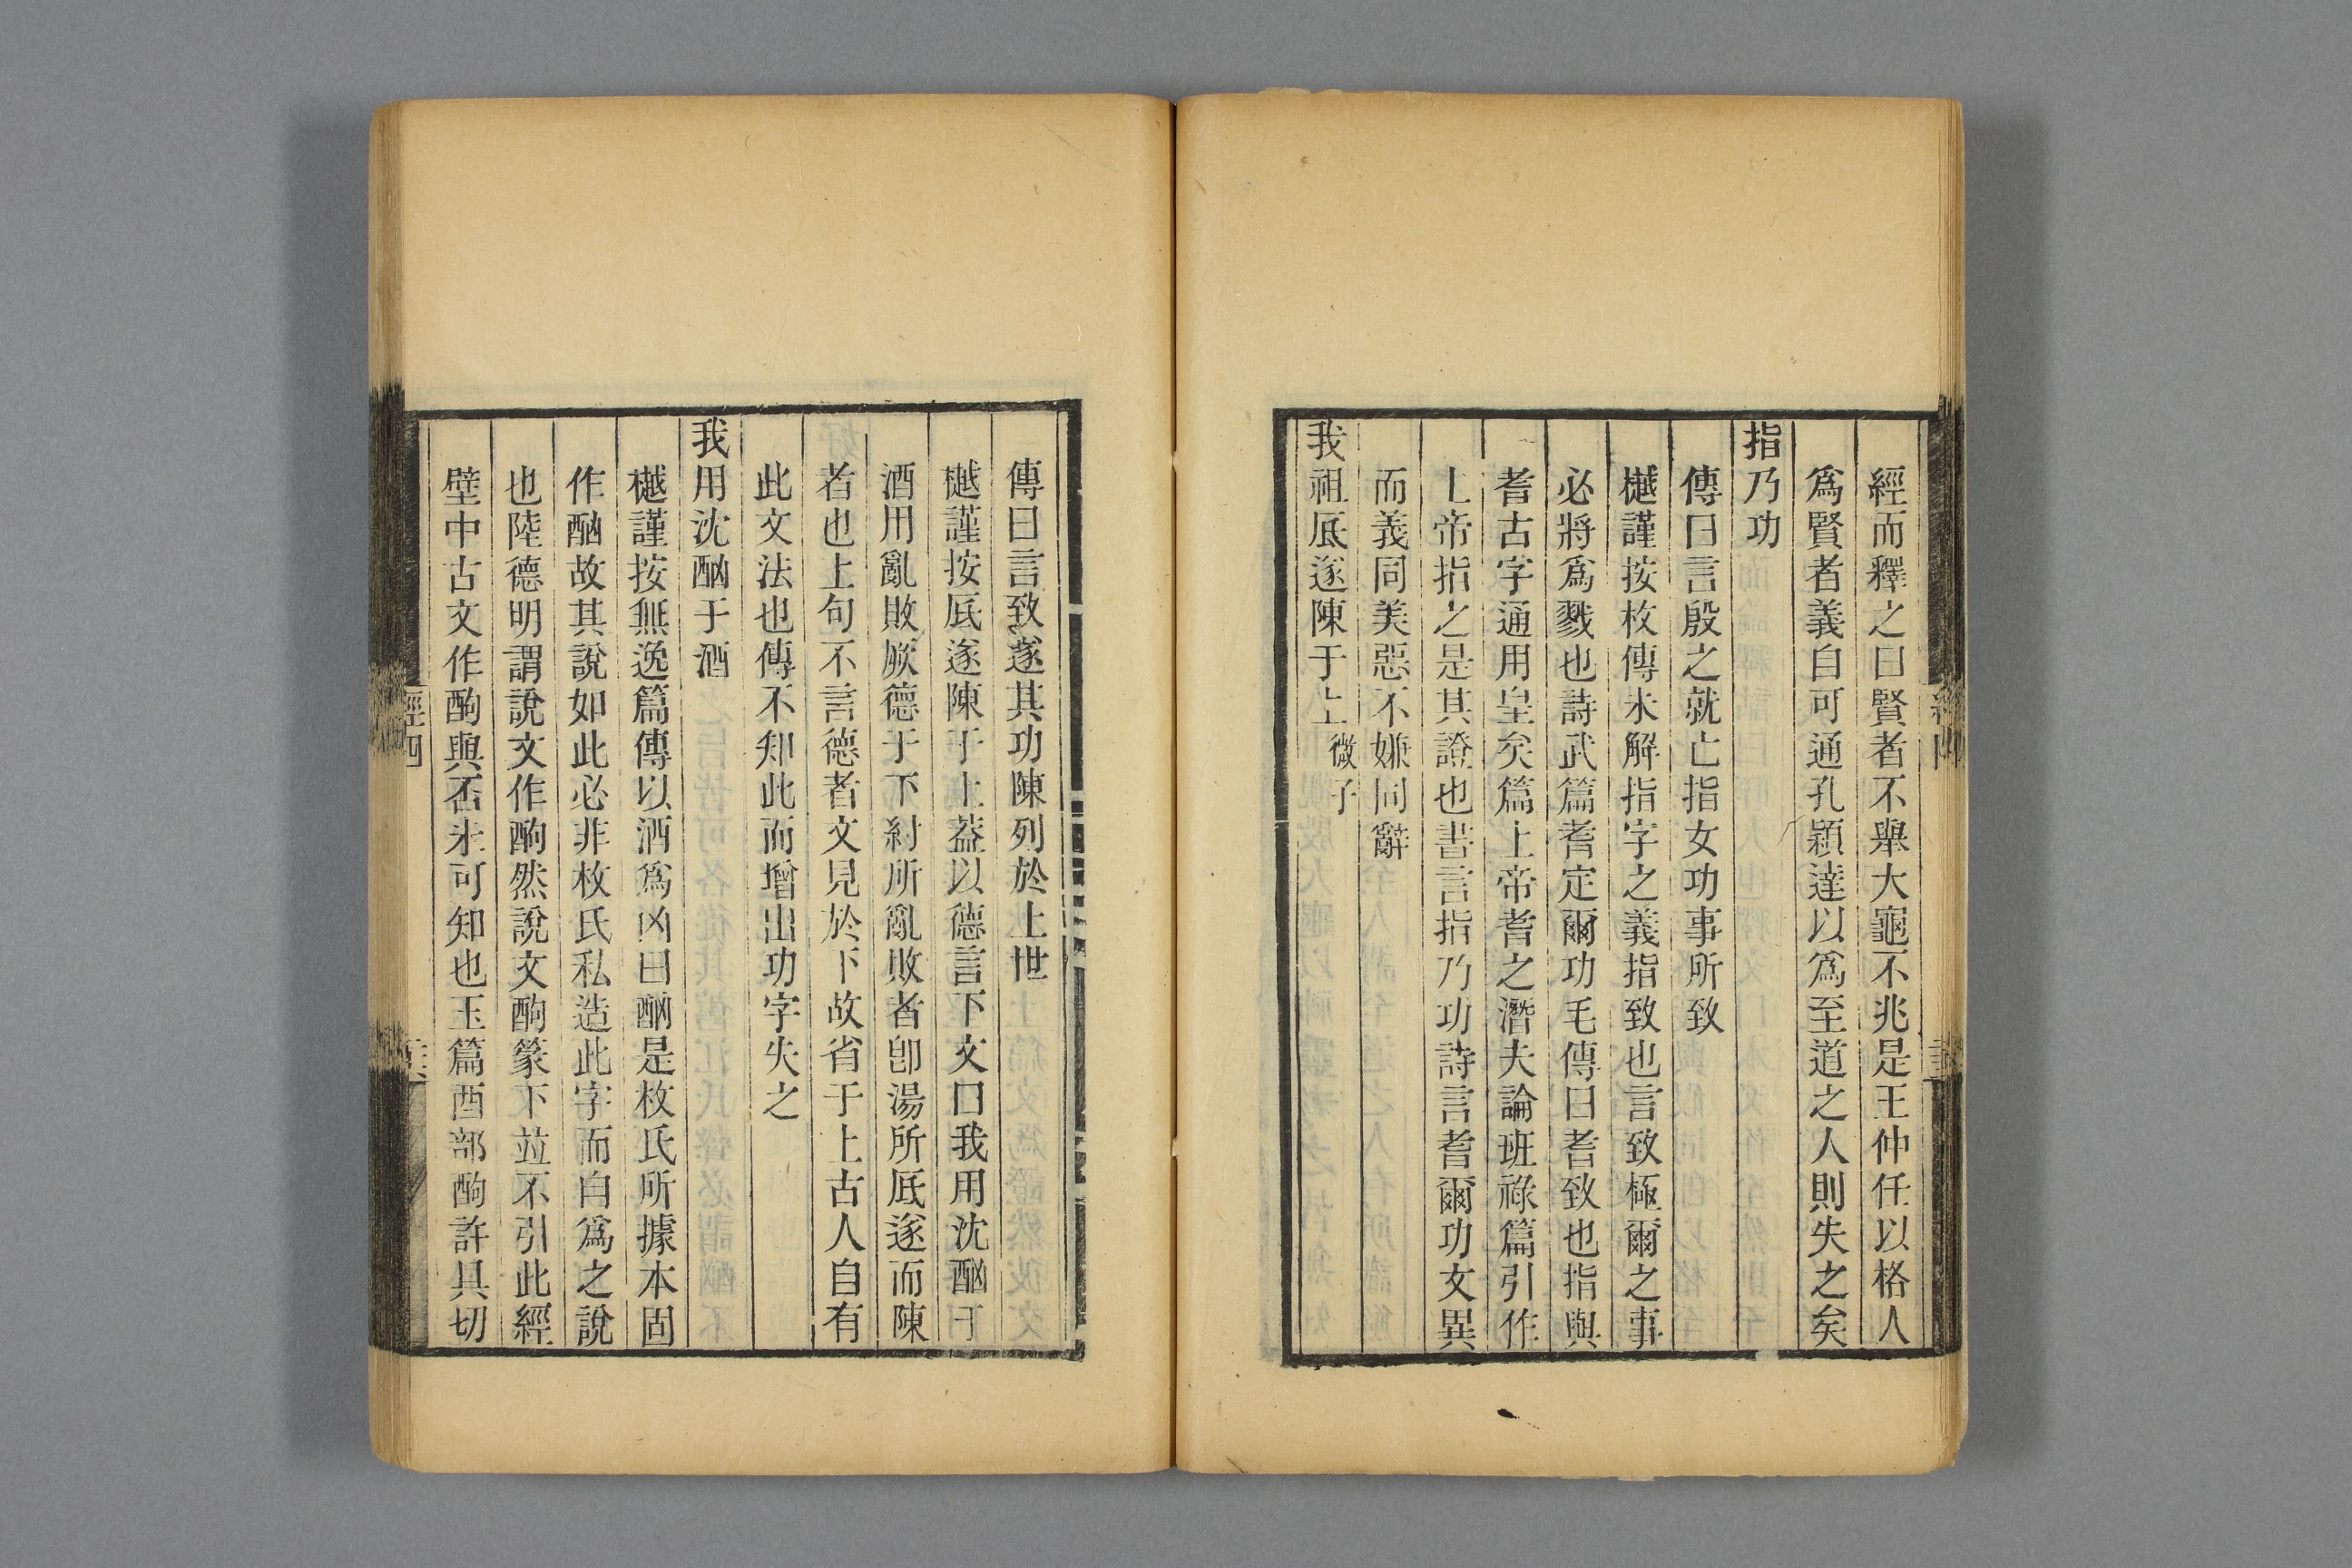 經而釋之曰賢者不舉大龜不兆是王仲任以格人
爲賢者義自可通孔穎達以爲至道之人則失之矣
指乃功
傳曰言殷之就亡指女功事所致
樾謹按枚傳未解指字之義指致也言致極爾之事
必將爲戮也詩武篇耆定爾功毛傳曰耆致也指與
耆古字通用皇矣篇上帝耆之潛夫論班祿篇引作
上帝指之是其證也書言指乃功詩言耆爾功文異
而義同美惡不嫌同辭
我祖厎遂陳于上 微子
傳曰言致遂其功陳列於上世
樾謹按厎遂陳于上葢以德言下文曰我用沈酗于
酒用亂敗厥德于下紂所亂敗者卽湯所厎遂而陳
者也上句不言德者文見於下故省于上古人自有
此文法也傳不知此而增出功字失之
我用沈酗于酒
樾謹按無逸篇傳以酒爲凶曰酗是枚氏所據本固
作酗故其說如此必非枚氏私造此字而自爲之說
也陸德明謂說文作酌然說文酌篆下竝不引此經
壁中古文作酌與否未可知也玉篇酉部酌許具切
經四